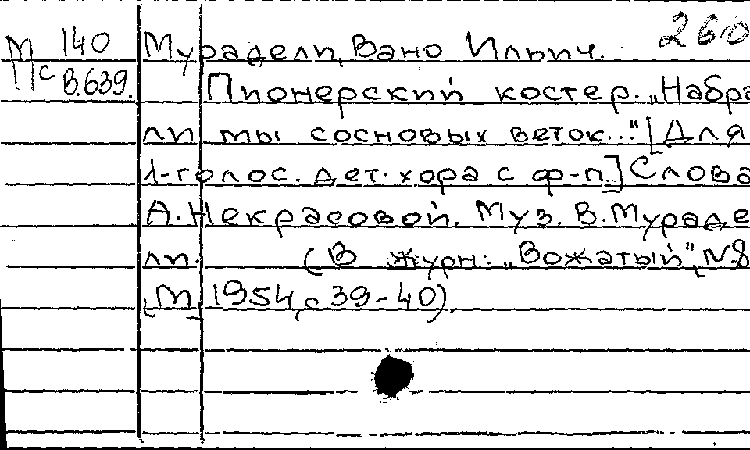 260
М 140 Мурадели, Вано Ильич.
Пс В.639. Пионерский костер. „Набра
ли мы сосновых веток..." [Для
1-голос. дет. хора с ф-п.] Слова
А. Некрасовой. Муз. В. Мураде
ли. (В журн: „Вожатый", N8
[М] 1954, с 39-40).